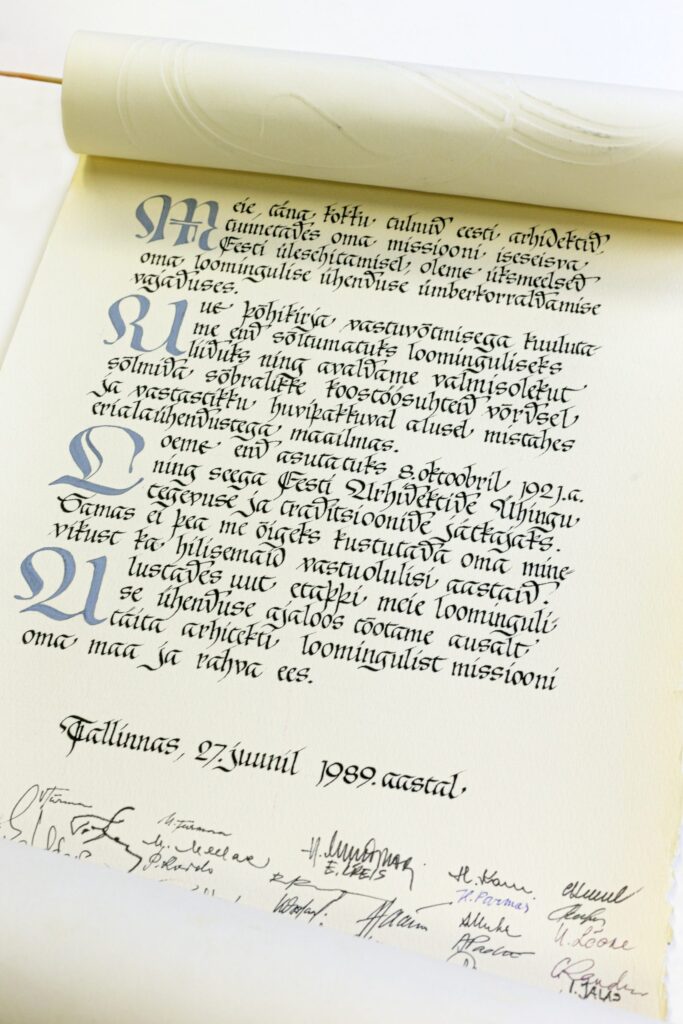 Meie, täna kokku tulnud eesti arhidektid,
tunnetades oma missiooni iseseisva
Eesti ülesehitamisel, oleme üksmeelsed
oma loomingulise ühenduse ümberkorraldamise
vajaduses.
Uue põhikirja vastuvõtmisega kuuluta-
me end sõltumatuks loominguliseks
liiduks ning avaldame valmisolekut
sõlmida sõbralikke koostöösuhteid võrdsel
ja vastastikku huvipakkuval alusel mistahes
erialaühendustega maailmas.
Loeme end asutatuks 8. oktoobril 1921.a.
ning seega Eesti Arhidektide Ühingu
tegevuse ja traditsioonide jätkajaks.
Samas ei pea me õigeks kustutada oma mine-
vikust ka hilisemaid vastuolulisi aastaid.
Alustades uut etappi meie loominguli-
se ühenduse ajaloos töötame ausalt,
täita arhitekti loomingulist missiooni
oma maa ja rahva ees.
Tallinnas, 27. juunil 1989. aastal.
E. LREIS
H. Parmas
U. Leone
T. JALAS